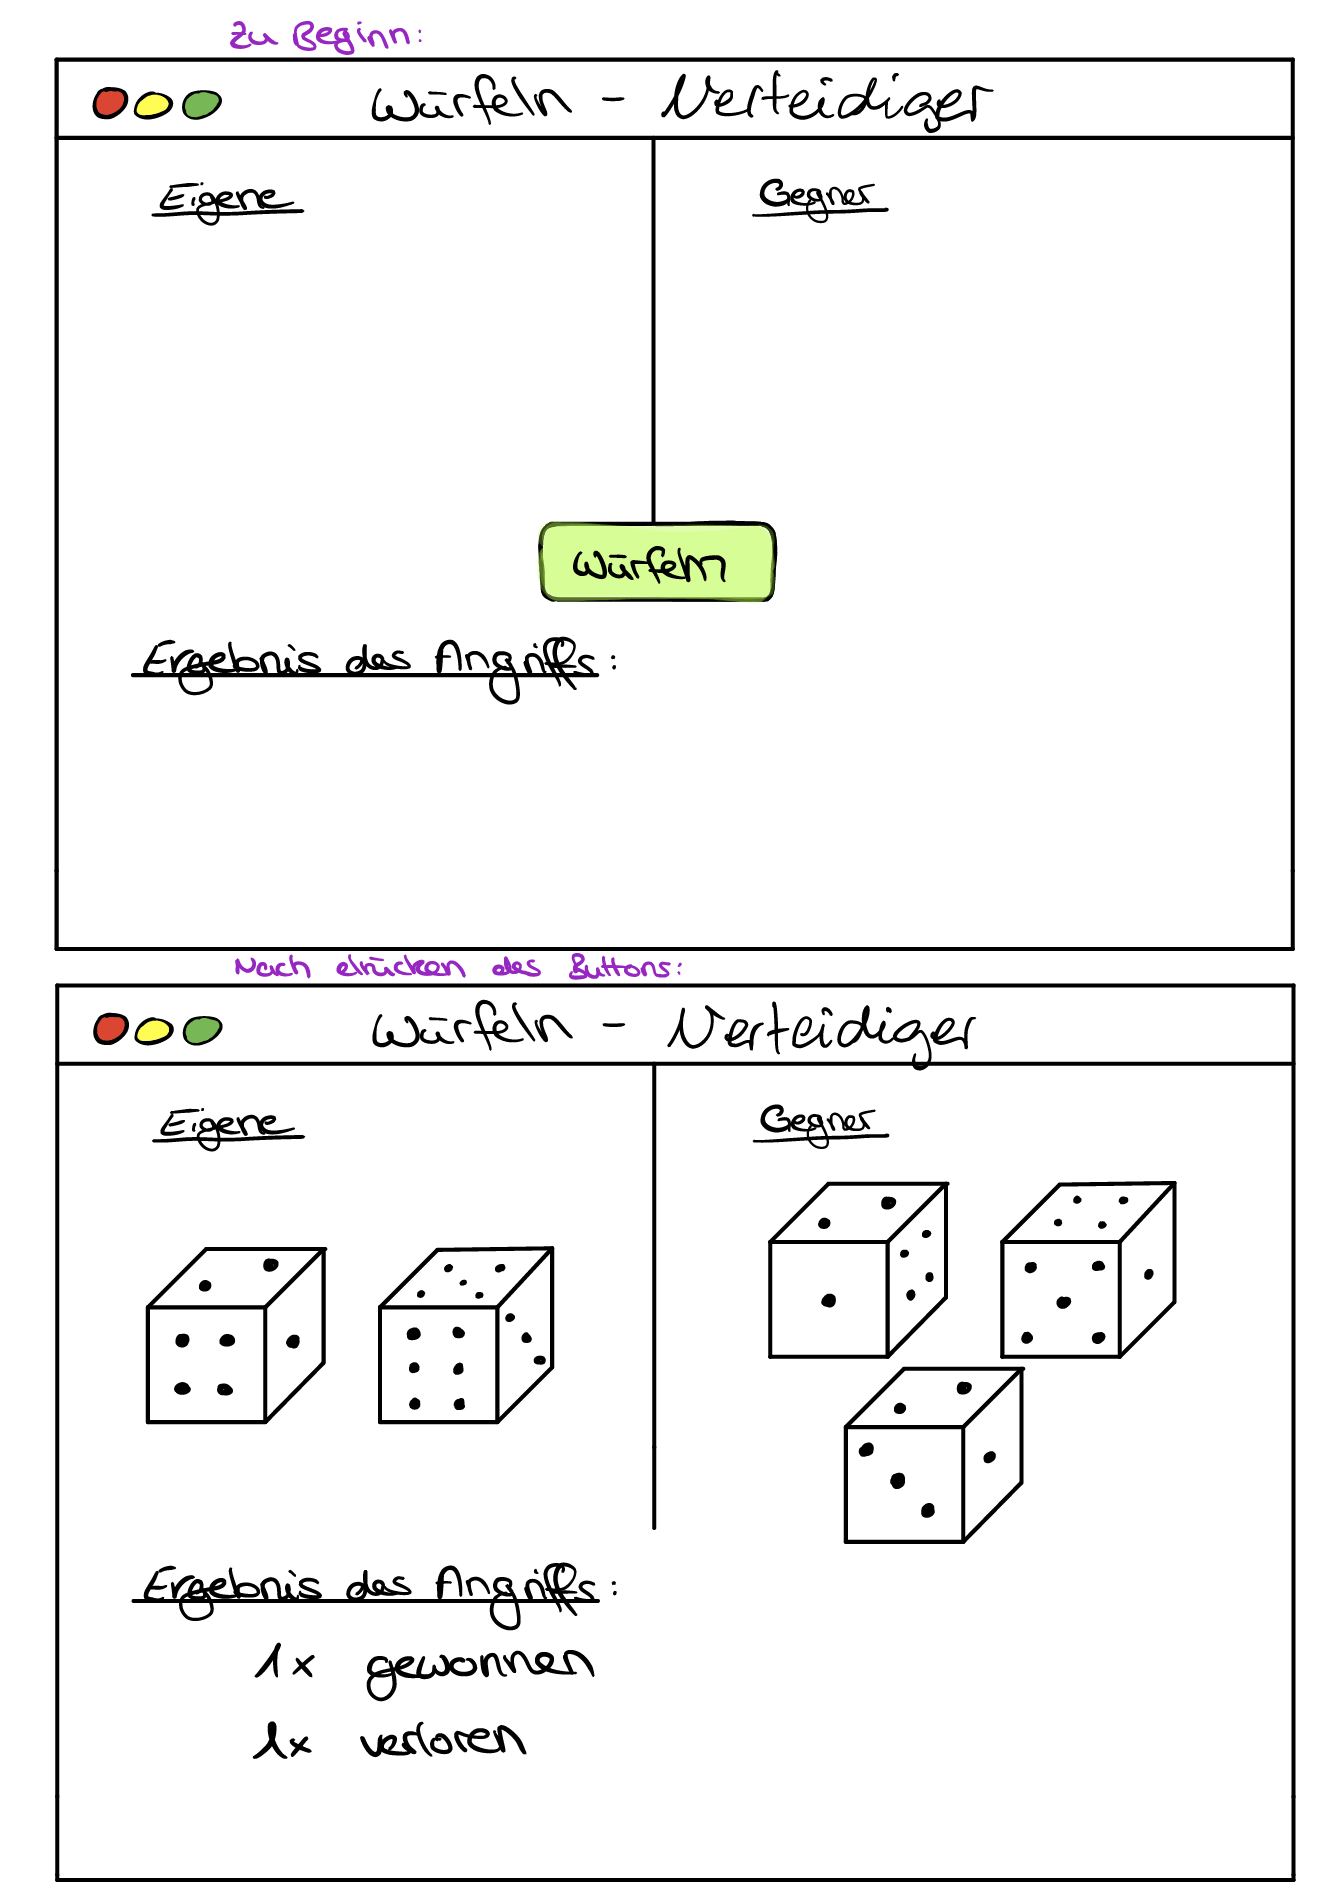 Zu Beginn:
Würfeln - Verteidiger
Eigene
Gegner
Würfeln
Ergebnis des Angriffs:
Nach drücken des Buttons:
Würfeln - Verteidiger
Eigene
Gegner
Ergebnis des Angriffs:
1x gewonnen
1x verloren